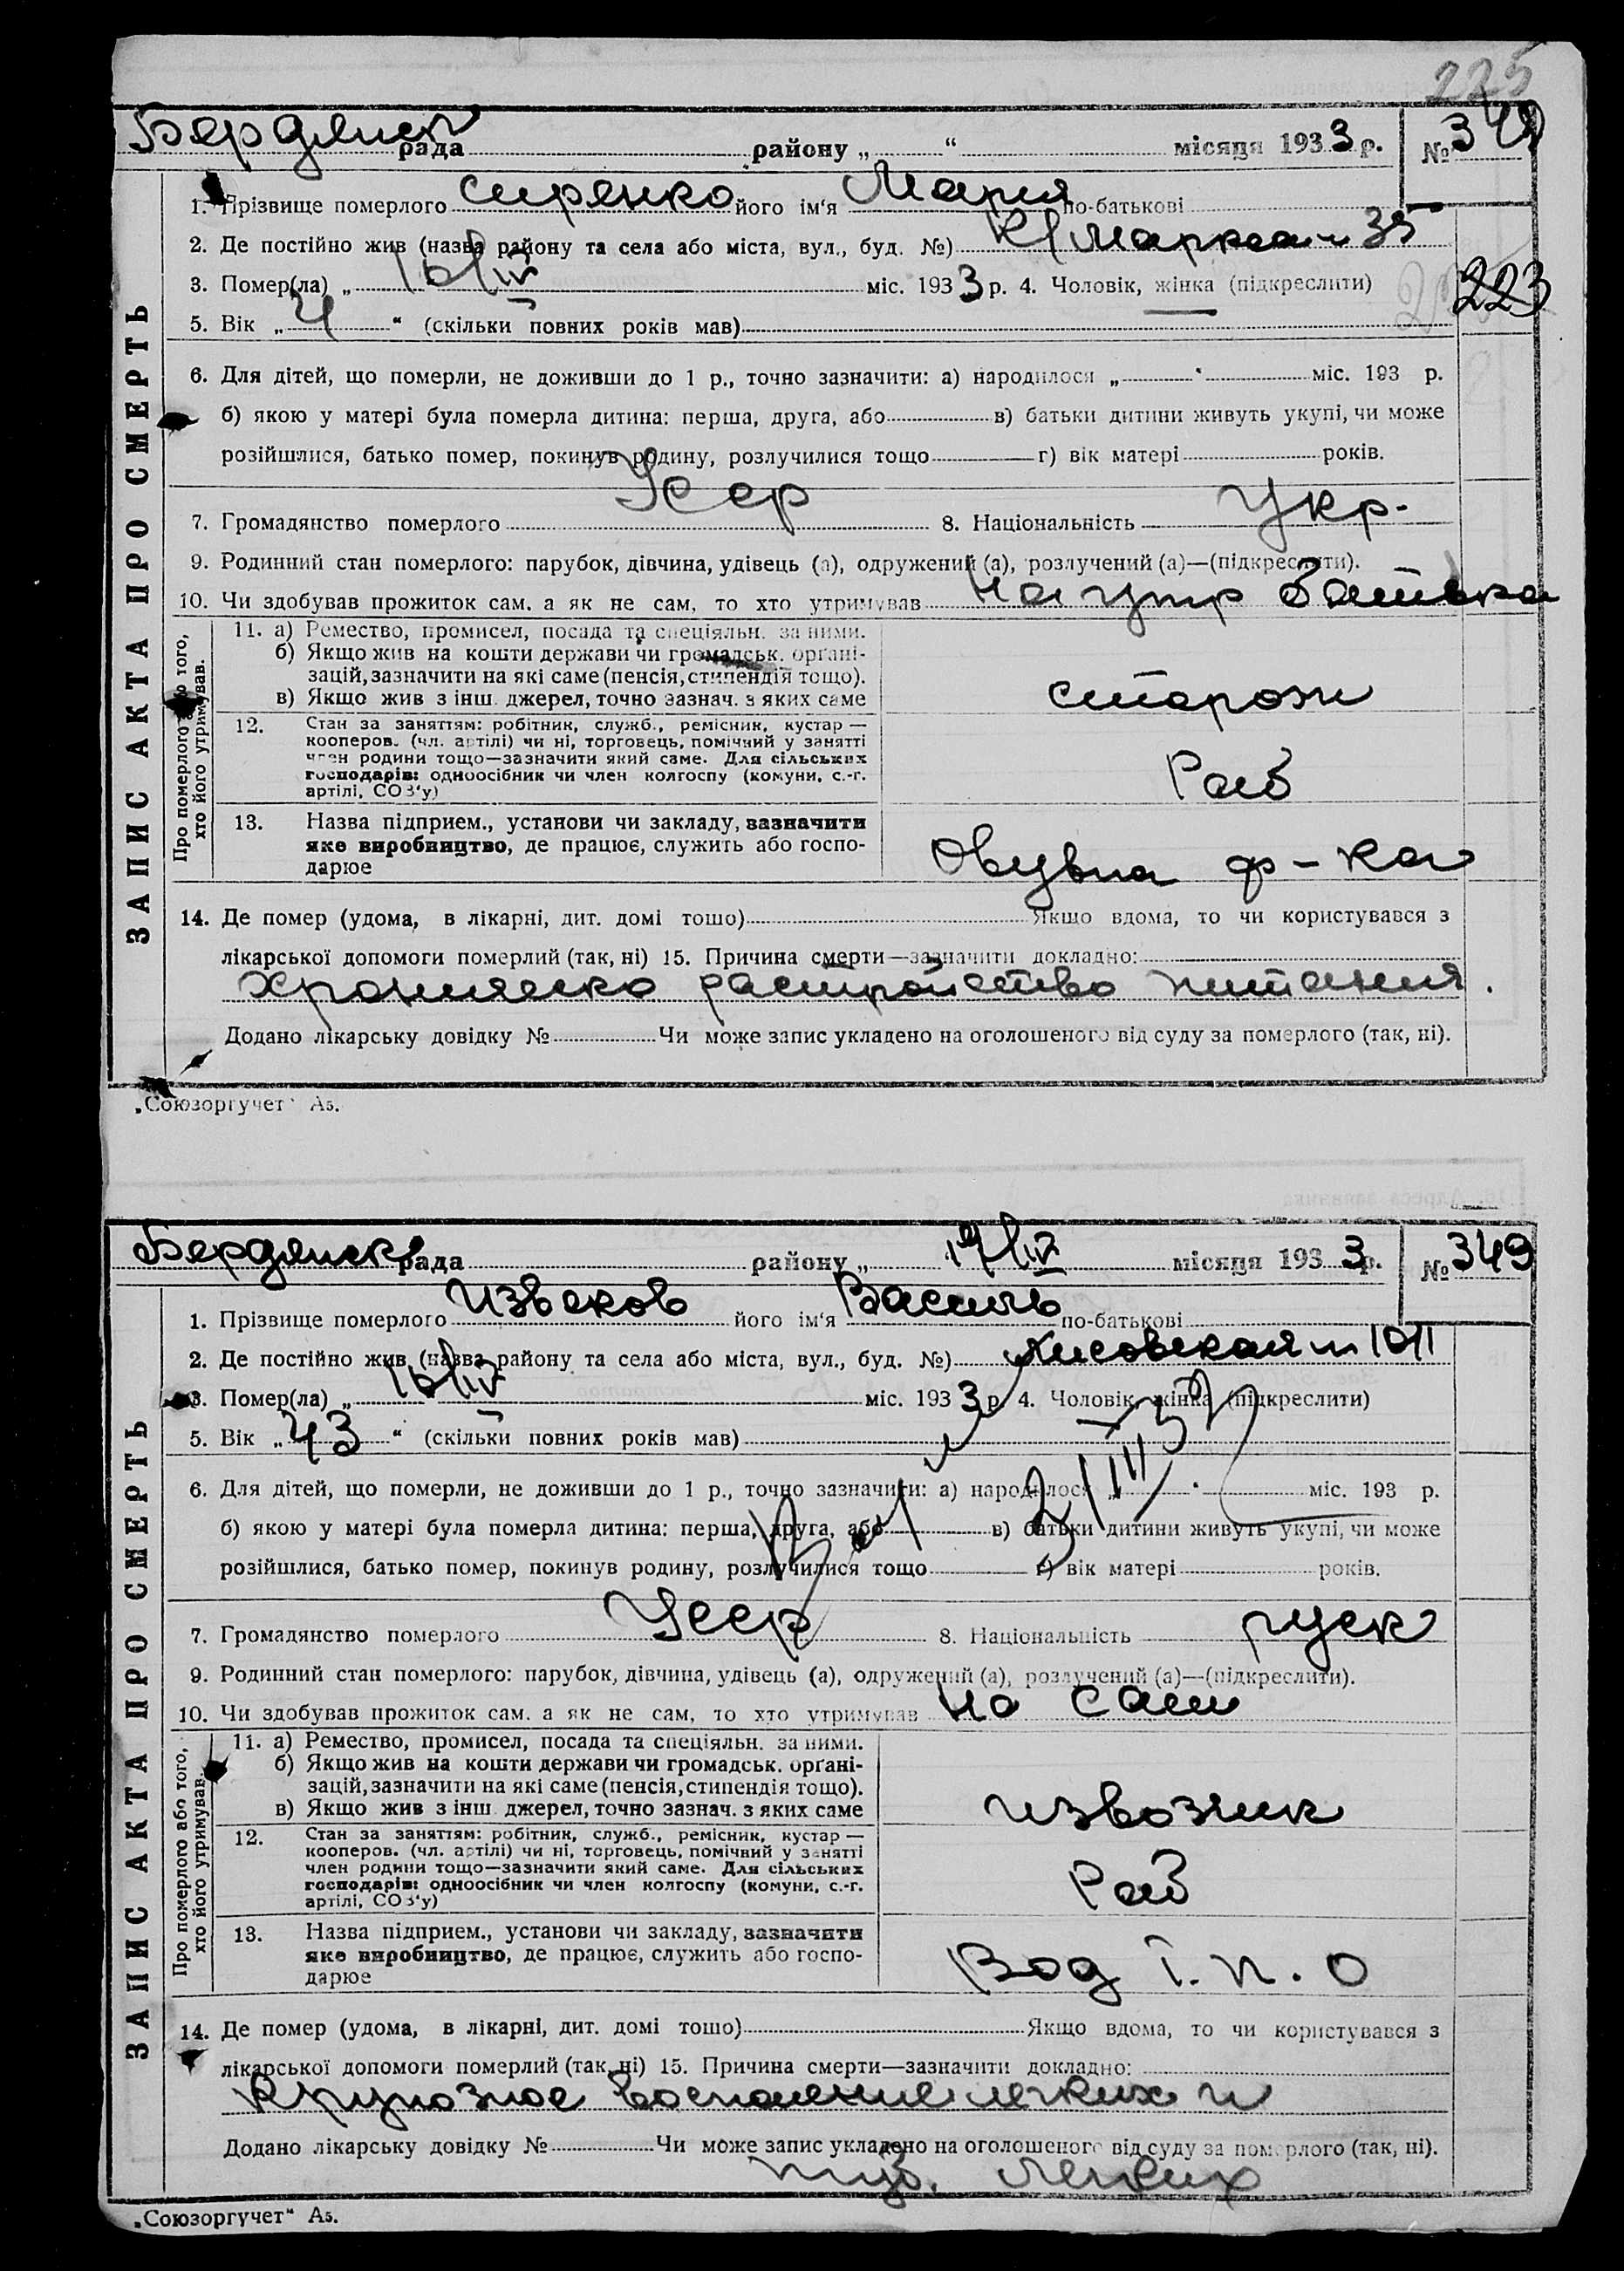 225
Бердянськ рада району „ “ місяця 1933 р. №
1. Прізвище померлого Сиренко його ім'я Мария по-батькові
2. Де постійно жив (назва району та села або міста, вул., буд. №) К Маркса 35
3. Помер(ла) „ 16/IV міс. 1933 р. 4. Чоловік, жінка (підкреслити)
223
5. Вік „ 4 “ (скільки повних років мав)
6. Для дітей, що померли, не доживши до 1 р., точно зазначити: а) народилося „ “ міс. 193 р.
б) якою у матері була померла дитина: перша, друга, або в) батьки дитини живуть укупі, чи може
розійшлися, батько помер, покинув родину, розлучилися тощо г) вік матері років.
7. Громадянство померлого Усср 8. Національність Укр.
9. Родинний стан померлого: парубок, дівчина, удівець (а), одружений (а), розлучений (а)—(підкреслити).
10. Чи здобував прожиток сам, а як не сам, то хто утримував на утр батька
ЗАПИС АКТА ПРО СМЕРТЬ
Про померлого або того, хто його утримував.
11. а) Ремество, промисел, посада та спеціяльн. за ними.
б) Якщо жив на кошти держави чи громадськ. органі-
зацій, зазначити на які саме (пенсія, стипендія тощо).
в) Якщо жив з інш. джерел, точно зазнач. з яких саме
сторож
12. Стан за заняттям: робітник, служб., ремісник, кустар —
кооперов. (чл. артілі) чи ні, торговець, помічний у занятті
член родини тощо—зазначити який саме. Для сільських
господарів: одноосібник чи член колгоспу (комуни, с.-г.
артілі, СОЗ'у)
Раб
13. Назва підприєм., установи чи закладу, зазначити
яке виробництво, де працює, служить або госпо-
дарює
Овувна ф-ка
14. Де помер (удома, в лікарні, дит. домі тошо) Якшо вдома, то чи користувався з
лікарської допомоги померлий (так, ні) 15. Причина смерти—зазначити докладно:
Хроническо расстройство питания.
Додано лікарську довідку № Чи може запис укладено на оголошеного від суду за померлого (так, ні).
„Союзоргучет“ А5.
Бердянськ рада району „ 19/IV місяця 1933 р. № 349
1. Прізвище померлого Извеков його ім'я Василь по-батькові
2. Де постійно жив (назва району та села або міста, вул., буд. №) Лисовская
3. Помер(ла) „ 16/IV міс. 1933 р. 4. Чоловік, жінка (підкреслити)
5. Вік „ 43 “ (скільки повних років мав)
6. Для дітей, що померли, не доживши до 1 р., точно зазначити: а) народилося „ “ міс. 193 р.
б) якою у матері була померла дитина: перша, друга, або в) батьки дитини живуть укупі, чи може
розійшлися, батько помер, покинув родину, розлучилися тощо г) вік матері років.
7. Громадянство померлого Усср 8. Національність руск
9. Родинний стан померлого: парубок, дівчина, удівець (а), одружений (а), розлучений (а)—(підкреслити).
10. Чи здобував прожиток сам, а як не сам, то хто утримував но сам
ЗАПИС АКТА ПРО СМЕРТЬ
Про померлого або того, хто його утримував.
11. а) Ремество, промисел, посада та спеціяльн. за ними.
б) Якщо жив на кошти держави чи громадськ. органі-
зацій, зазначити на які саме (пенсія, стипендія тощо).
в) Якщо жив з інш. джерел, точно зазнач. з яких саме
извозчик
12. Стан за заняттям: робітник, служб., ремісник, кустар —
кооперов. (чл. артілі) чи ні, торговець, помічний у занятті
член родини тощо—зазначити який саме. Для сільських
господарів: одноосібник чи член колгоспу (комуни, с.-г.
артілі, СОЗ'у)
Раб
13. Назва підприєм., установи чи закладу, зазначити
яке виробництво, де працює, служить або госпо-
дарює
Вод Т.П.О
14. Де помер (удома, в лікарні, дит. домі тошо) Якщо вдома, то чи користувався з
лікарської допомоги померлий (так, ні) 15. Причина смерти—зазначити докладно:
Крупозное воспаление легких и
Додано лікарську довідку № Чи може запис укладено на оголошеного від суду за померлого (так, ні).
легких
„Союзоргучет“ А5.